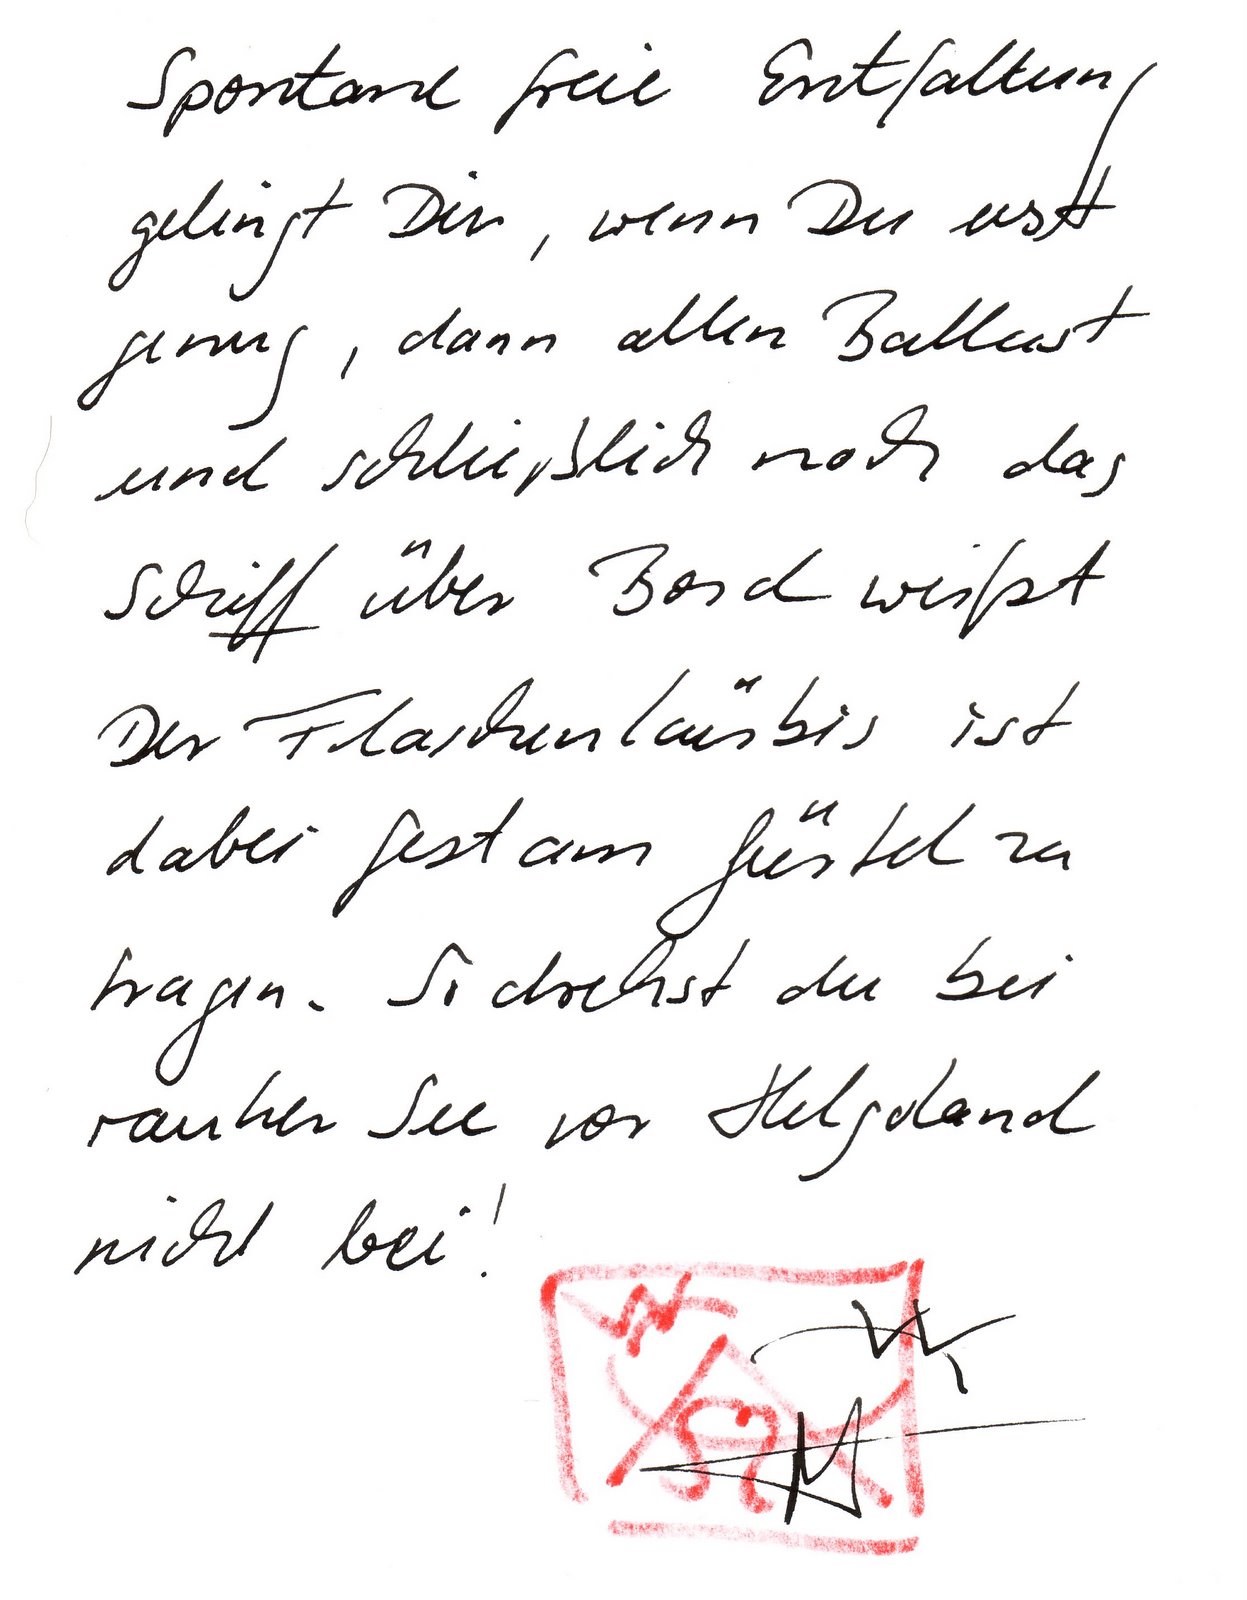 Spontane freie Entfaltung
gelingt Dir, wenn Du erst
genug, dann allen Ballast
und schließlich noch das
Schiff über Bord wirfst
Der Flaschenkürbis ist
dabei fest am Gürtel zu
tragen. So drehst du bei
rauher See vor Helgoland
nicht bei!